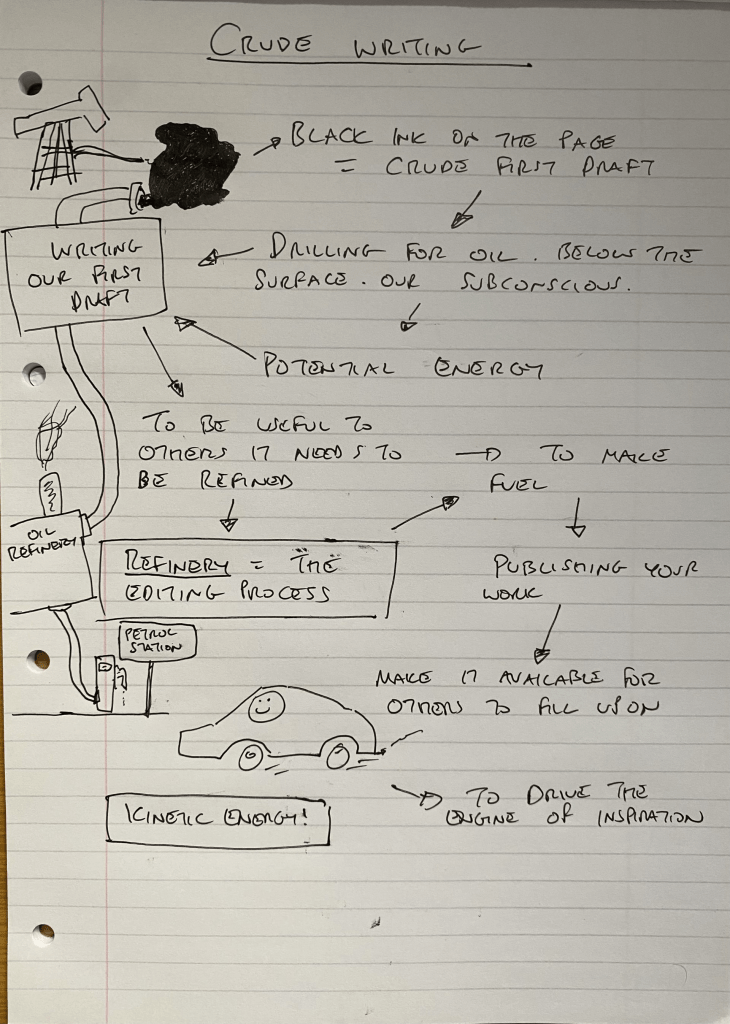 CRUDE WRITING
BLACK INK ON THE PAGE
= CRUDE FIRST DRAFT
WRITING
OUR FIRST
DRAFT
DRILLING FOR OIL. BELOW THE
SURFACE. OUR SUBCONSCIOUS.
POTENTIAL ENERGY
TO BE USEFUL TO
OTHERS IT NEEDS TO
BE REFINED
TO MAKE
FUEL
OIL
REFINERY
REFINERY = THE
EDITING PROCESS
PUBLISHING YOUR
WORK
PETROL
STATION
MAKE IT AVAILABLE FOR
OTHERS TO FILL UP ON
TO DRIVE THE
ENGINE OF INSPIRATION
KINETIC ENERGY!